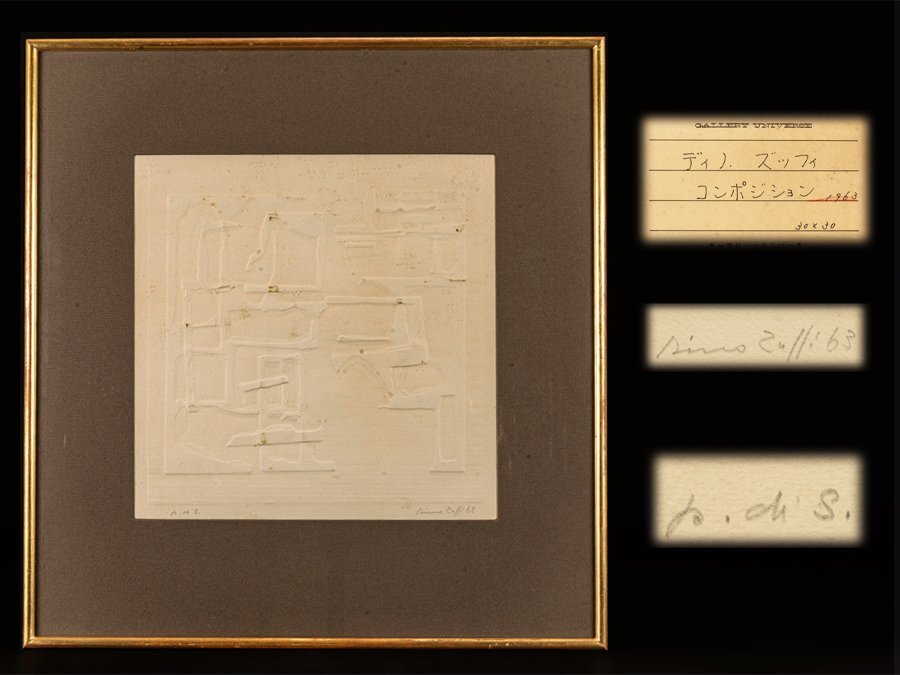 p. di S.
dino Zuffi 63
GALLERY UNIVERSE
ディノ. ズッフィ
コンポジション 1963
30 x 30
ギャラリー・ユニバース
dino Zuffi 63
p. di S.